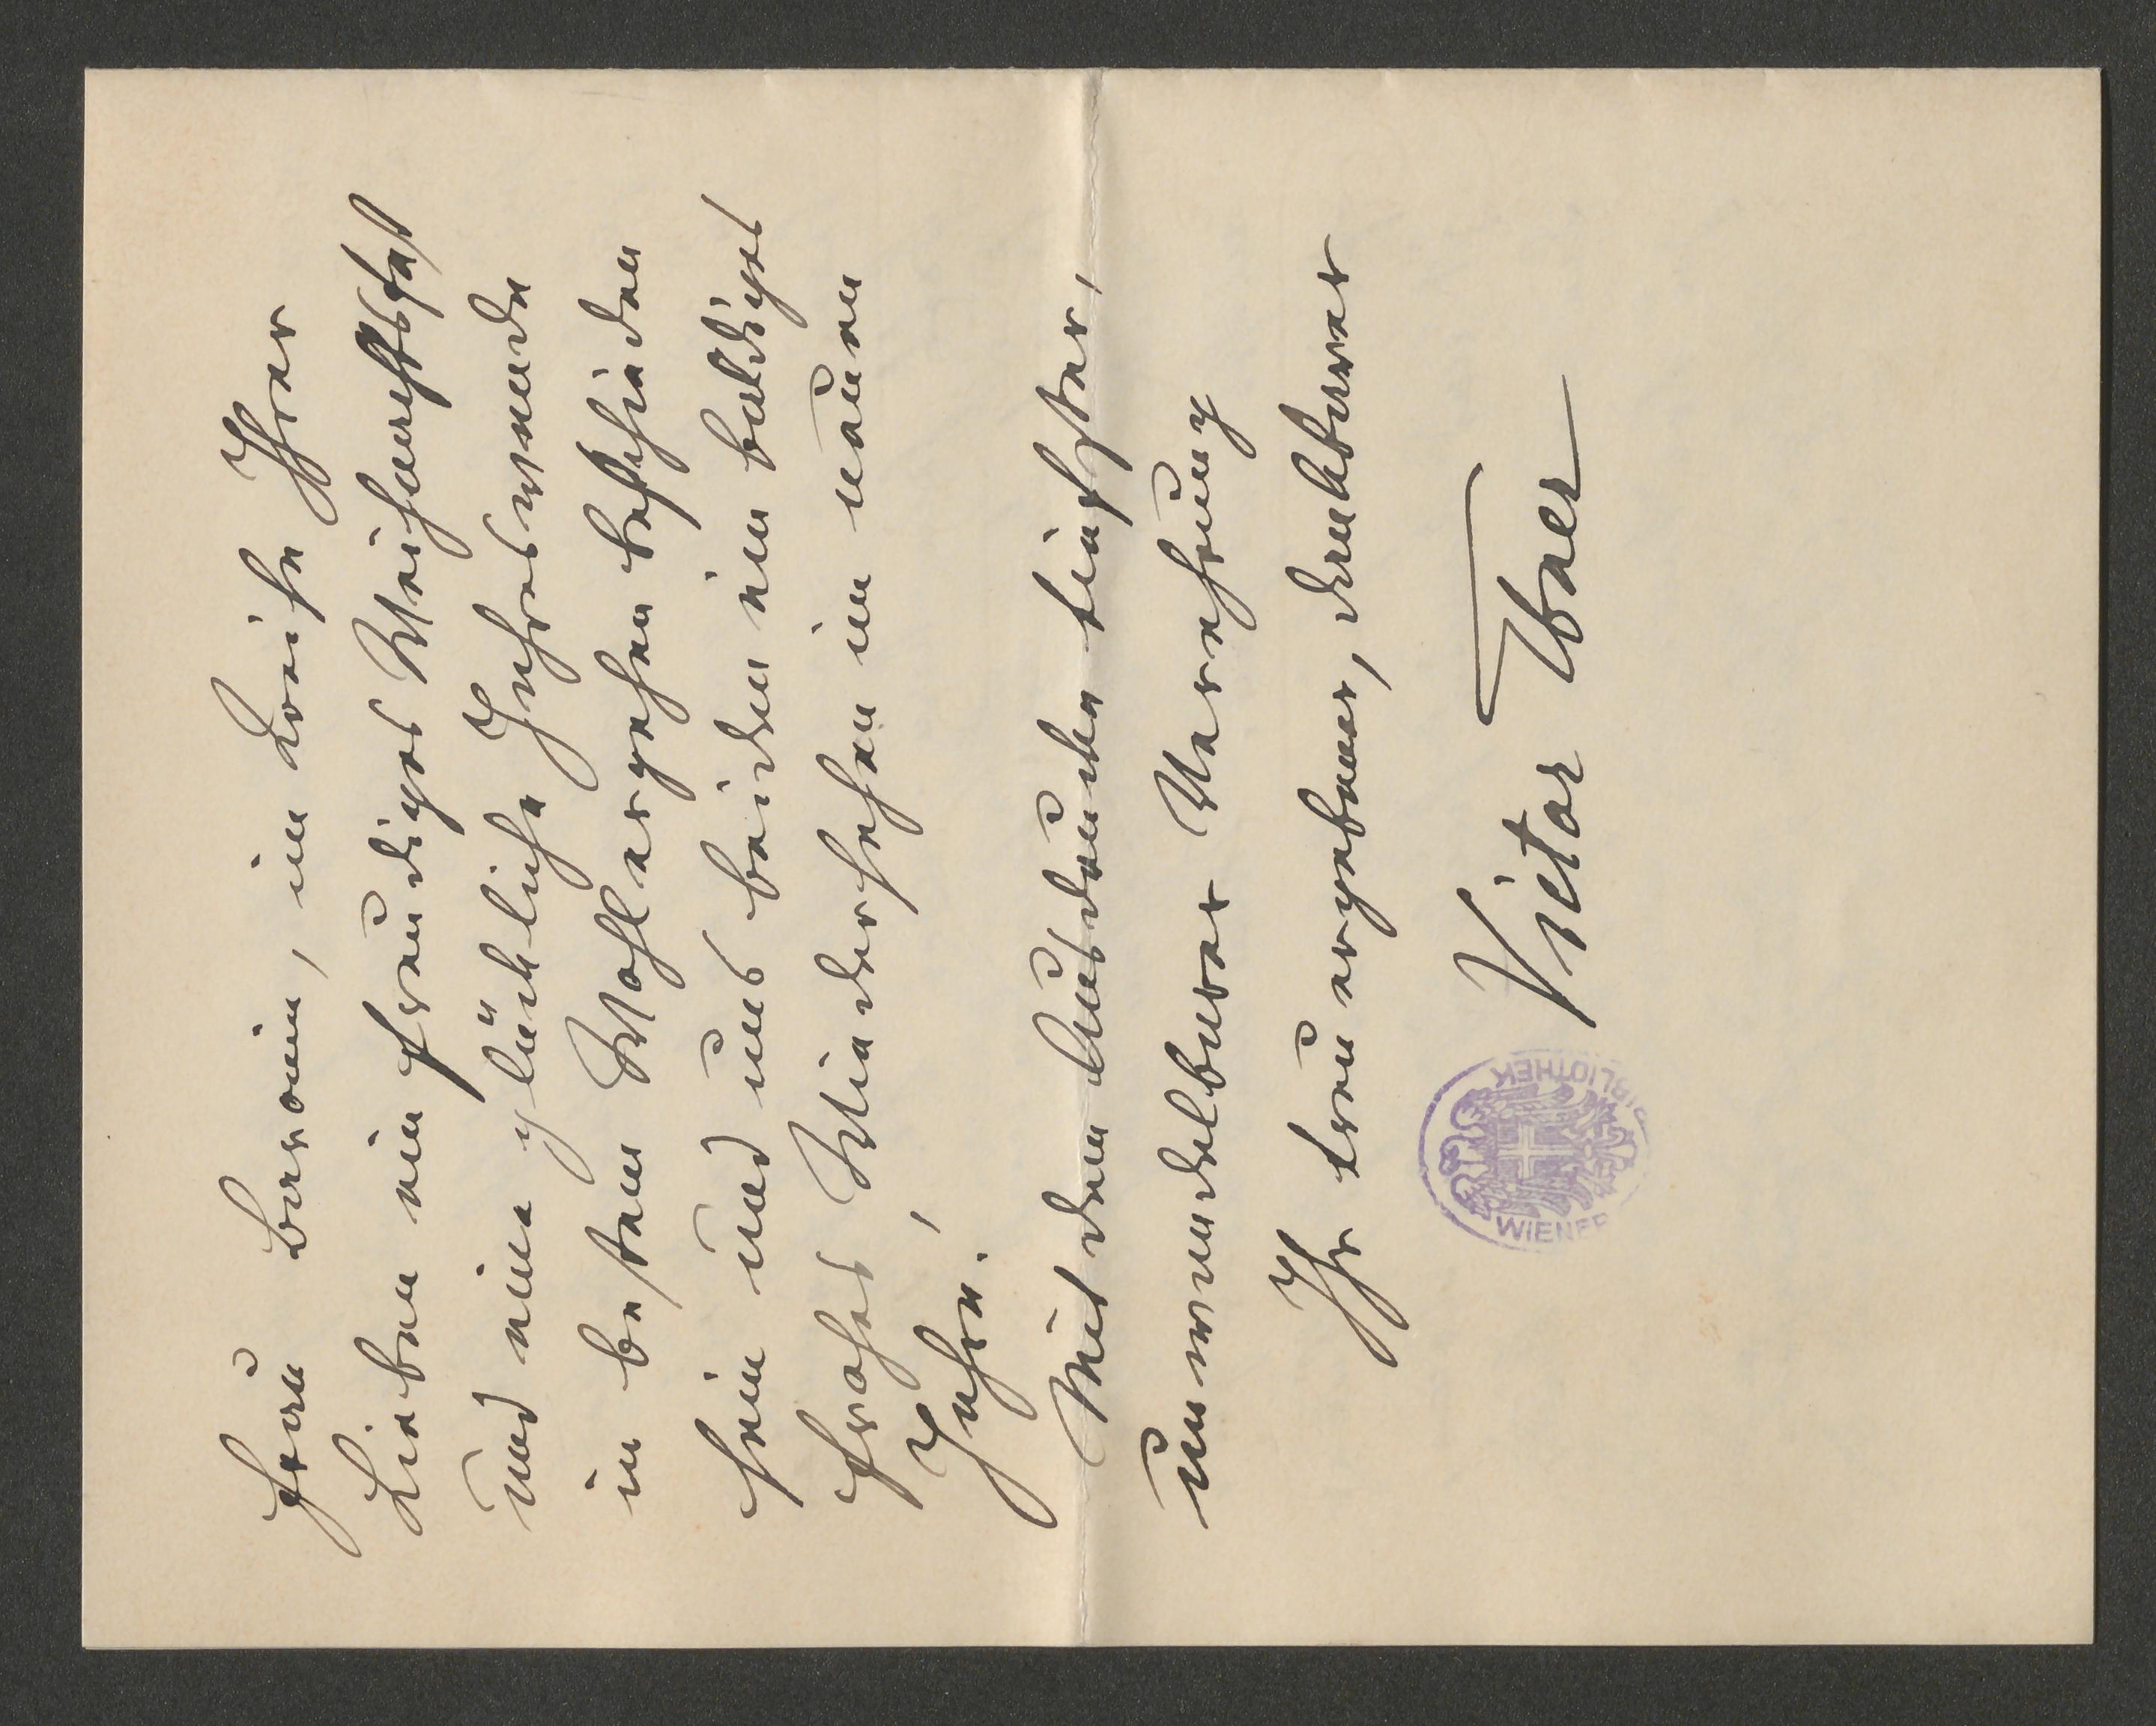 Frau Baronin, im Kreise Ihrer
Lieben ein freudiges Weihnachtsfest
und eine glückliche Jahreswende
in bestem Wohlergehen beschieden
sein und uns beiden ein baldiges
frohes, Wiedersehen im neuen
Jahre.
Mit dem Ausdrucke tiefster,
unwandelbarer Verehrung
Ihr treu ergebener, dankbarer
Victor
WIENER
BIBLIOTHEK